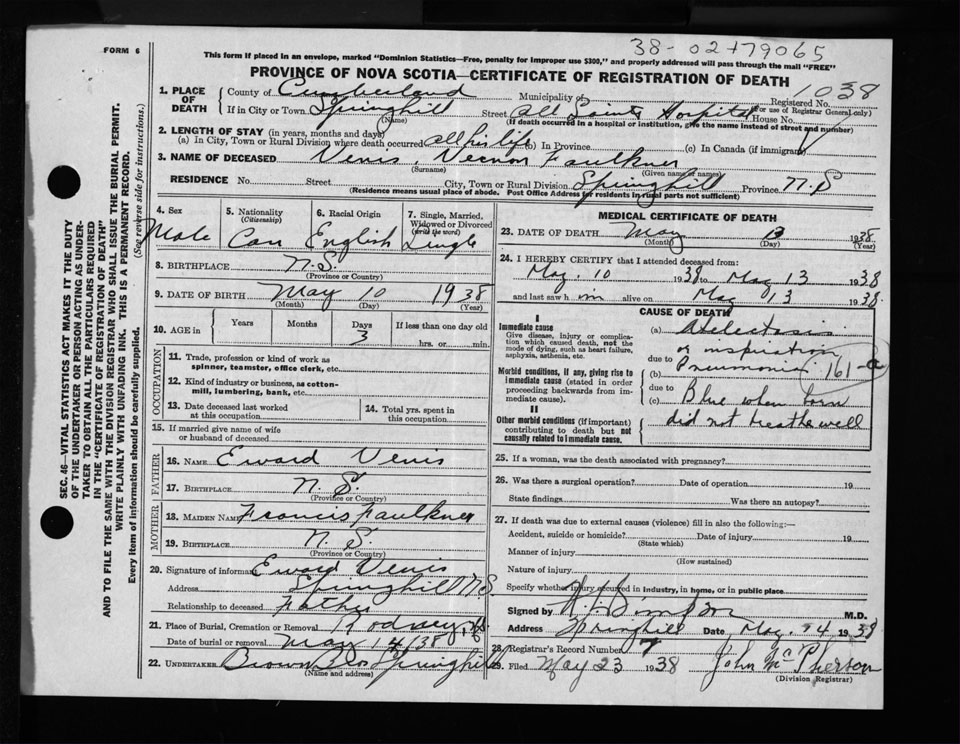 FORM 6
38-02+79065
This form if placed in an envelope, marked "Dominion Statistics—Free, penalty for improper use $300," and properly addressed will pass through the mail "FREE"
PROVINCE OF NOVA SCOTIA—CERTIFICATE OF REGISTRATION OF DEATH
1038
1. PLACE OF DEATH County of Cumberland Municipality of Registered No.
(For use of Registrar General only)
If in City or Town Springhill Street All Saints Hospital House No.
(Name) (If death occurred in a hospital or institution, give the name instead of street and number)
2. LENGTH OF STAY (in years, months and days)
(a) In City, Town or Rural Division where death occurred all his life (b) In Province (c) In Canada (if immigrant)
3. NAME OF DECEASED Venis, Vernon Faulkner
(Surname) (Given name or names)
RESIDENCE No. Street City, Town or Rural Division Springhill Province N.S
(Residence means usual place of abode. Post Office Address for residents in rural parts not sufficient)
4. Sex 5. Nationality (Citizenship) 6. Racial Origin 7. Single, Married, Widowed or Divorced (write the word)
Male Can English Single
8. BIRTHPLACE N.S.
(Province or Country)
9. DATE OF BIRTH May 10 1938
(Month) (Day) (Year)
10. AGE in Years Months Days If less than one day old
3 hrs. or min.
OCCUPATION
11. Trade, profession or kind of work as spinner, teamster, office clerk, etc.
12. Kind of industry or business, as cotton-mill, lumbering, bank, etc.
13. Date deceased last worked at this occupation
14. Total yrs. spent in this occupation
15. If married give name of wife or husband of deceased
FATHER
16. NAME Eward Venis
17. BIRTHPLACE N.S.
(Province or Country)
MOTHER
18. MAIDEN NAME Francis Faulkner
19. BIRTHPLACE N.S.
(Province or Country)
20. Signature of informant Eward Venis
Address Springhill N.S
Relationship to deceased Father
21. Place of Burial, Cremation or Removal Rodney
Date of burial or removal May 14
22. UNDERTAKER Brown Bros Springhill
(Name and address)
MEDICAL CERTIFICATE OF DEATH
23. DATE OF DEATH May 13 1938
(Month) (Day) (Year)
24. I HEREBY CERTIFY that I attended deceased from:
May. 10 1938 to May 13 1938
and last saw him alive on May 13 1938.
CAUSE OF DEATH
I
Immediate cause
Give disease, injury or complication which caused death, not the mode of dying, such as heart failure, asphyxia, asthenia, etc.
(a) Atelectasis
or inspiration
due to
Morbid conditions, if any, giving rise to immediate cause (stated in order proceeding backwards from immediate cause).
(b) Pneumonia 161-a
due to
(c) Blue when born
II
Other morbid conditions (if important) contributing to death but not causally related to immediate cause.
did not breathe well
25. If a woman, was the death associated with pregnancy?
26. Was there a surgical operation? Date of operation 19
State findings Was there an autopsy?
27. If death was due to external causes (violence) fill in also the following:—
Accident, suicide or homicide? Date of injury 19
(State which)
Manner of injury
(How sustained)
Nature of injury
Specify whether injury occurred in industry, in home, or in public place
Signed by M.D.
Address Springhill Date May. 1938
28. Registrar's Record Number 7
29. Filed May 23 1938 John McPherson
(Division Registrar)
SEC. 46—VITAL STATISTICS ACT MAKES IT THE DUTY
OF THE UNDERTAKER OR PERSON ACTING AS UNDERTAKER TO OBTAIN ALL THE PARTICULARS REQUIRED
IN THE "CERTIFICATE OF REGISTRATION OF DEATH"
AND TO FILE THE SAME WITH THE DIVISION REGISTRAR WHO SHALL ISSUE THE BURIAL PERMIT.
WRITE PLAINLY WITH UNFADING INK. THIS IS A PERMANENT RECORD.
Every item of information should be carefully supplied. (See reverse side for instructions.)